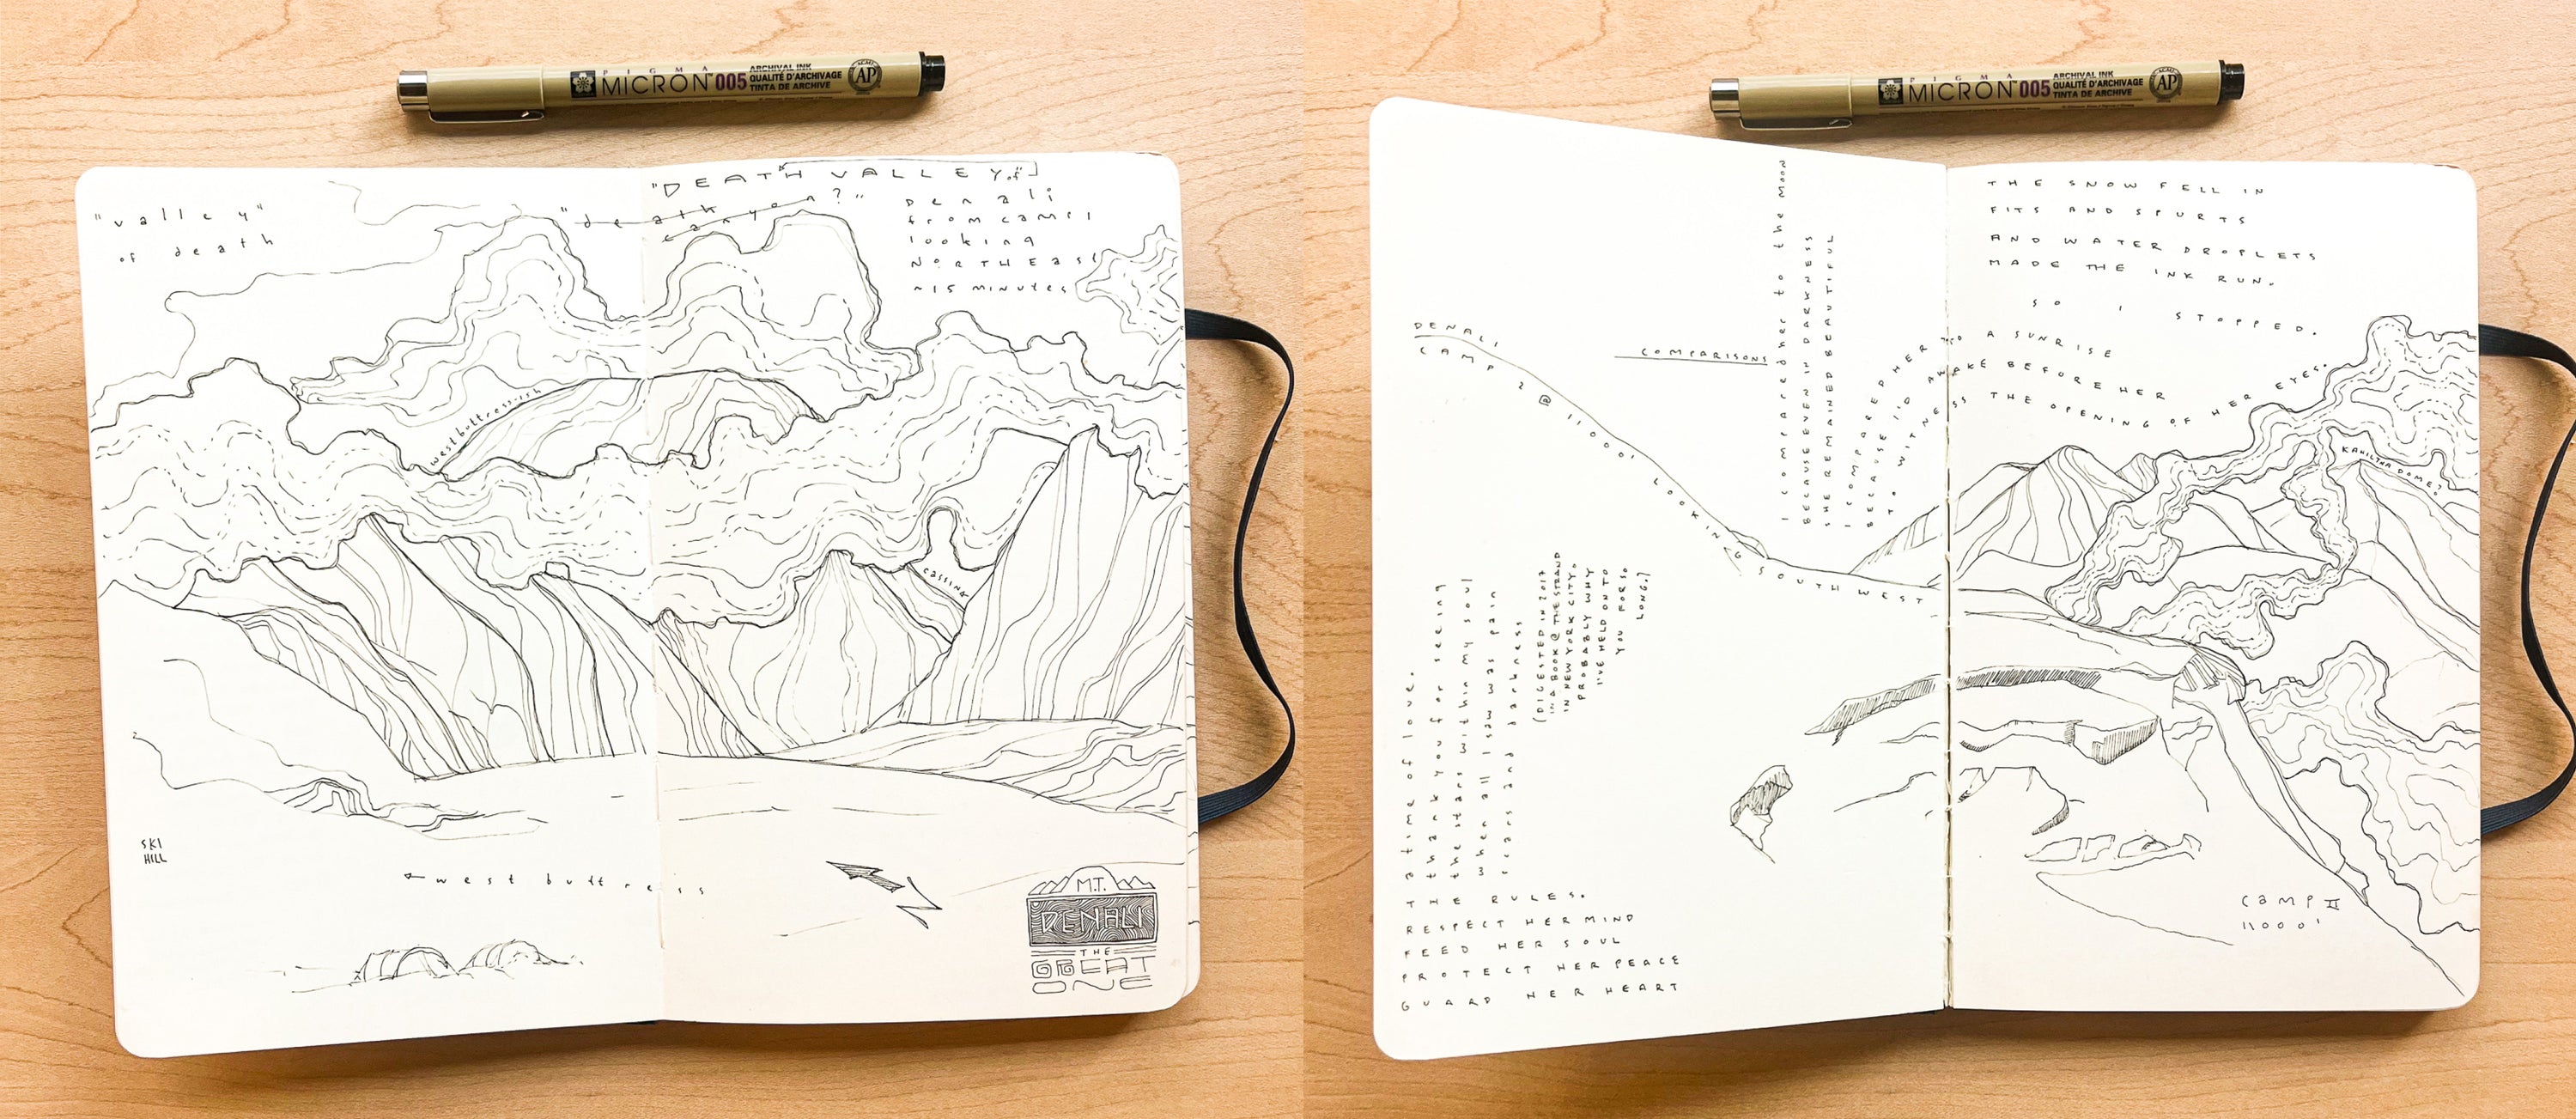 PIGMA
MICRON™ 005
ARCHIVAL INK
QUALITÉ D'ARCHIVAGE
TINTA DE ARCHIVE
AP
"valley"
of death
"DEATH VALLEY" of
"death canyon?"
Denali
from camp 1
looking
NORTHEAST
~15 MINUTES
west buttress-ish
CASSING
SKI
HILL
west buttress
MT.
DENALI
THE
GREAT
ONE
PIGMA
MICRON™ 005
ARCHIVAL INK
QUALITÉ D'ARCHIVAGE
TINTA DE ARCHIVE
AP
DENALI
CAMP 2 @ 11000' LOOKING SOUTH WEST
COMPARISONS
I compared her to the moon
BECAUSE EVEN IN DARKNESS
SHE REMAINED BEAUTIFUL
I COMPARED HER TO A SUNRISE
BECAUSE I'D AWAKE BEFORE HER
TO WITNESS THE OPENING OF HER EYES.
THE SNOW FELL IN
FITS AND SPURTS
AND WATER DROPLETS
MADE THE INK RUN.
SO I STOPPED.
KAHILTNA DOME?
a time of love.
thank you for seeing
the stars within my soul
when all I saw was pain
scars and darkness
(DIGESTED IN 2017
IN A BOOK @ THE STRAND
IN NEW YORK CITY.
PROBABLY WHY
I'VE HELD ONTO
YOU FOR SO
LONG.)
THE RULES.
RESPECT HER MIND
FEED HER SOUL
PROTECT HER PEACE
GUARD HER HEART
CAMP II
11000'